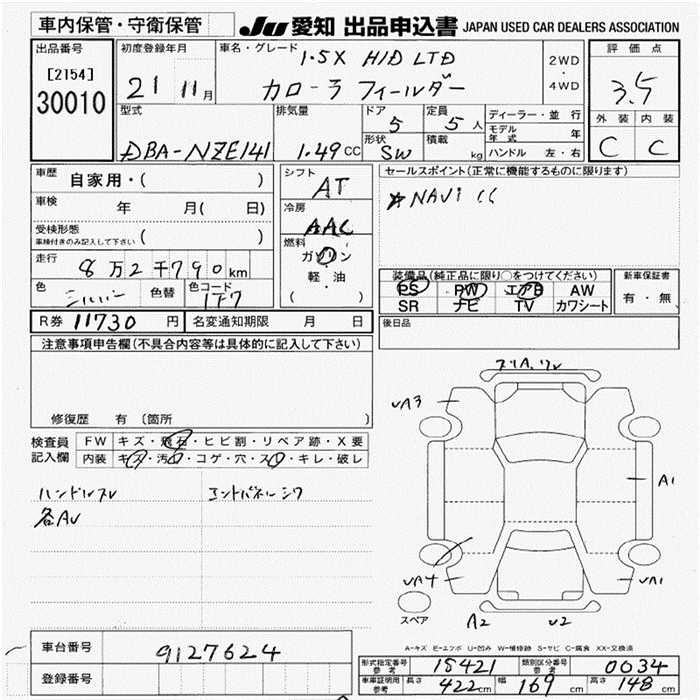 車内保管・守衛保管 JU 愛知 出品申込書 JAPAN USED CAR DEALERS ASSOCIATION
出品番号 初度登録年月 車名・グレード 1.5X HID LTD 2WD・4WD 評価点
[2154]
30010 21 11月 カローラフィールダー 3.5
型式 排気量 ドア 5 定員 5人 ディーラー・並行 外装 内装
モデル年式 年
DBA-NZE141 1.49CC 形状 SW 積載 kg ハンドル 左・右 C C
車歴 自家用・( ) シフト AT セールスポイント(正常に機能するものに限ります)
車検 年 月( 日) 冷房 AAC ☆NAVi CC
受検形態
車検付きのみ記入して下さい ( ) 燃料 ガソリン
走行 8万2千790km 軽・油 装備品(純正品に限り○をつけてください) 新車保証書
色 シルバー 色替 色コード 1F7 ( ) PS PW エアB AW 有・無
SR ナビ TV カワシート
R券 11730 円 名変通知期限 月 日 後日品
注意事項申告欄(不具合内容等は具体的に記入して下さい)
修復歴 有 〔箇所
検査員 FW キズ・飛石・ヒビ割・リペア跡・X要
記入欄 内装 キズ・汚れ・コゲ・穴・スレ・キレ・破レ
ハンドルスレ エンドパネルシワ
各AU
UA3
A1
UA4 UA1
スペア A2 U2
A-キズ E-エクボ U-凹み W-補修跡 S-サビ C-腐食 XX-交換済
車台番号 9127624
形式指定番号 参考 15421 類別区分番号 参考 0034
登録番号 車庫証明用 参考 長さ 422cm 幅 169cm 高さ 148cm